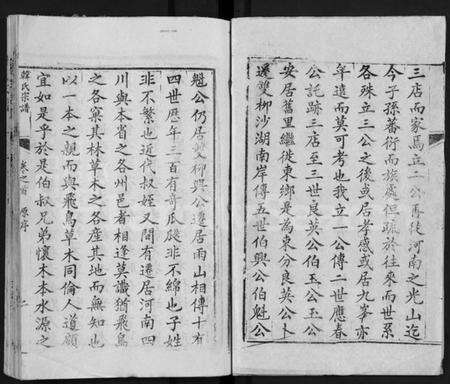 三店而家焉立二公再徙河南之光山迄
今子孫蕃衍而族處但疏於往來而世系
各殊立三公之後或居孝感或居九峯亦
年遠而莫可考也我立一公傳一世應春
公託跡三店至三世良英公玉公玉公
安居舊里繼徙東鄉是為東分良英公卜
遷雙柳沙湖南岸傳五世伯興公伯魁公
魁公仍居雙柳興公遷居雨山相傳十有
四世歷年三百有奇瓜瓞非不綿也子姓
非不繁也近代叔姪又間有遷居河南四
川與本省之各州邑者相逢莫識猶飛鳥
之各棄其林草木之各產其地而無知也
以一本之親而與飛鳥草木同倫人道顧
宜如是乎於是伯叔兄弟懷木本水源之
韓氏宗譜
卷之首
原序
二